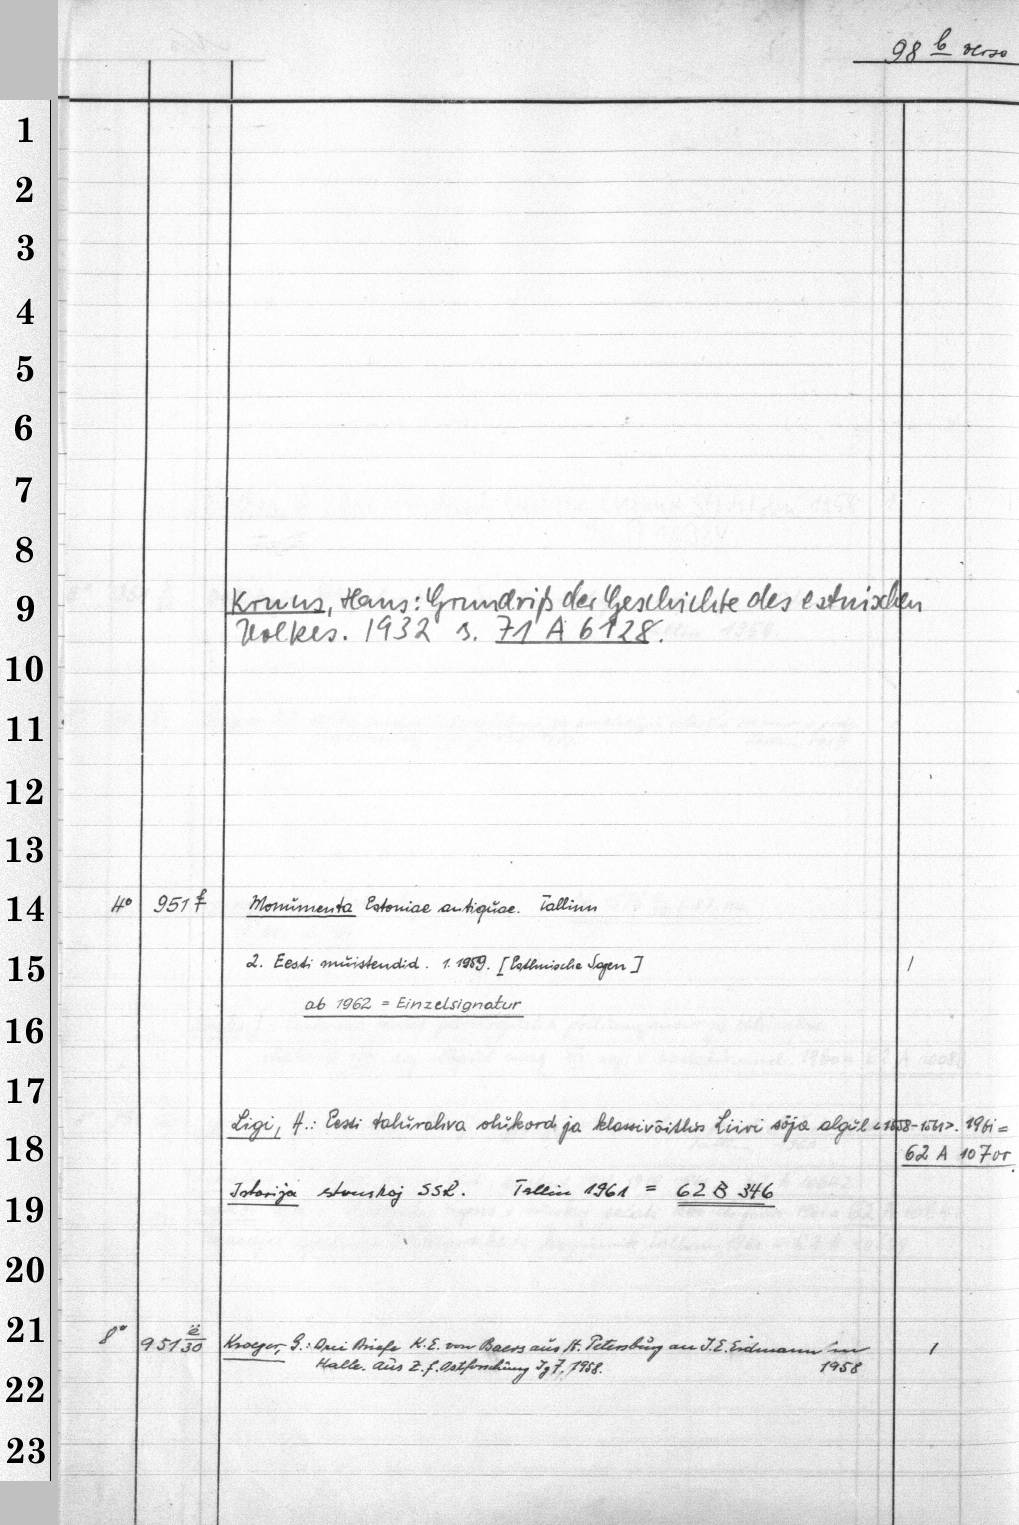 98 b verso
1
2
3
4
5
6
7
8
9 Kruus, Hans: Grundriß der Geschichte des estnischen
Volkes. 1932 s. 71 A 6128.
10
11
12
13
14 4° 951 f Monumenta Estoniae antiquae. Tallinn
15 2. Eesti muistendid. 1. 1959. [Esthnische Sagen] 1
ab 1962 = Einzelsignatur
16
17
Ligi, H.: Eesti talurahva olukord ja klassivõitlus Liivi sõja algul <1558-1561>. 1961 =
18 62 A 107
19 Istorija Estonskoj SSR. Tallin 1961 = 62 B 346
20
21 8° 951 ë/30 Kroeger, G.: Drei Briefe K. E. von Baers aus St. Petersburg an J. E. Erdmann in 1
Halle. Aus Z. f. Ostforschung Jg 7, 1958. 1958
22
23